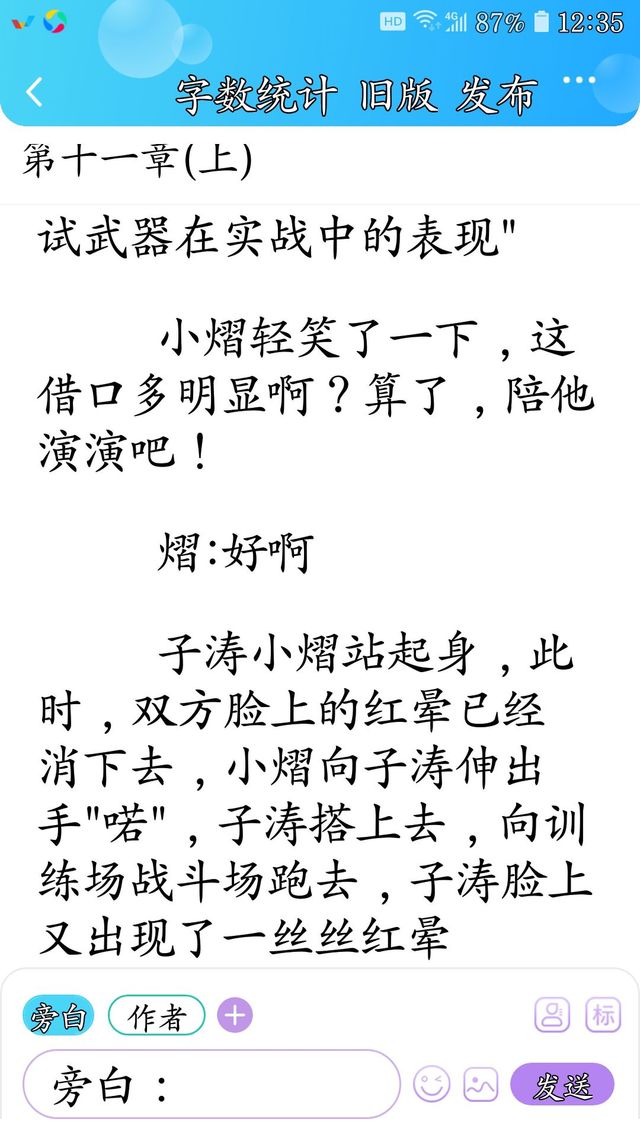 HD 4G 87% 12:35
字数统计 旧版 发布 ···
第十一章(上)
试武器在实战中的表现"
小熠轻笑了一下，这
借口多明显啊？算了，陪他
演演吧！
熠:好啊
子涛小熠站起身，此
时，双方脸上的红晕已经
消下去，小熠向子涛伸出
手"喏"，子涛搭上去，向训
练场战斗场跑去，子涛脸上
又出现了一丝丝红晕
旁白 作者
标
旁白：
发送